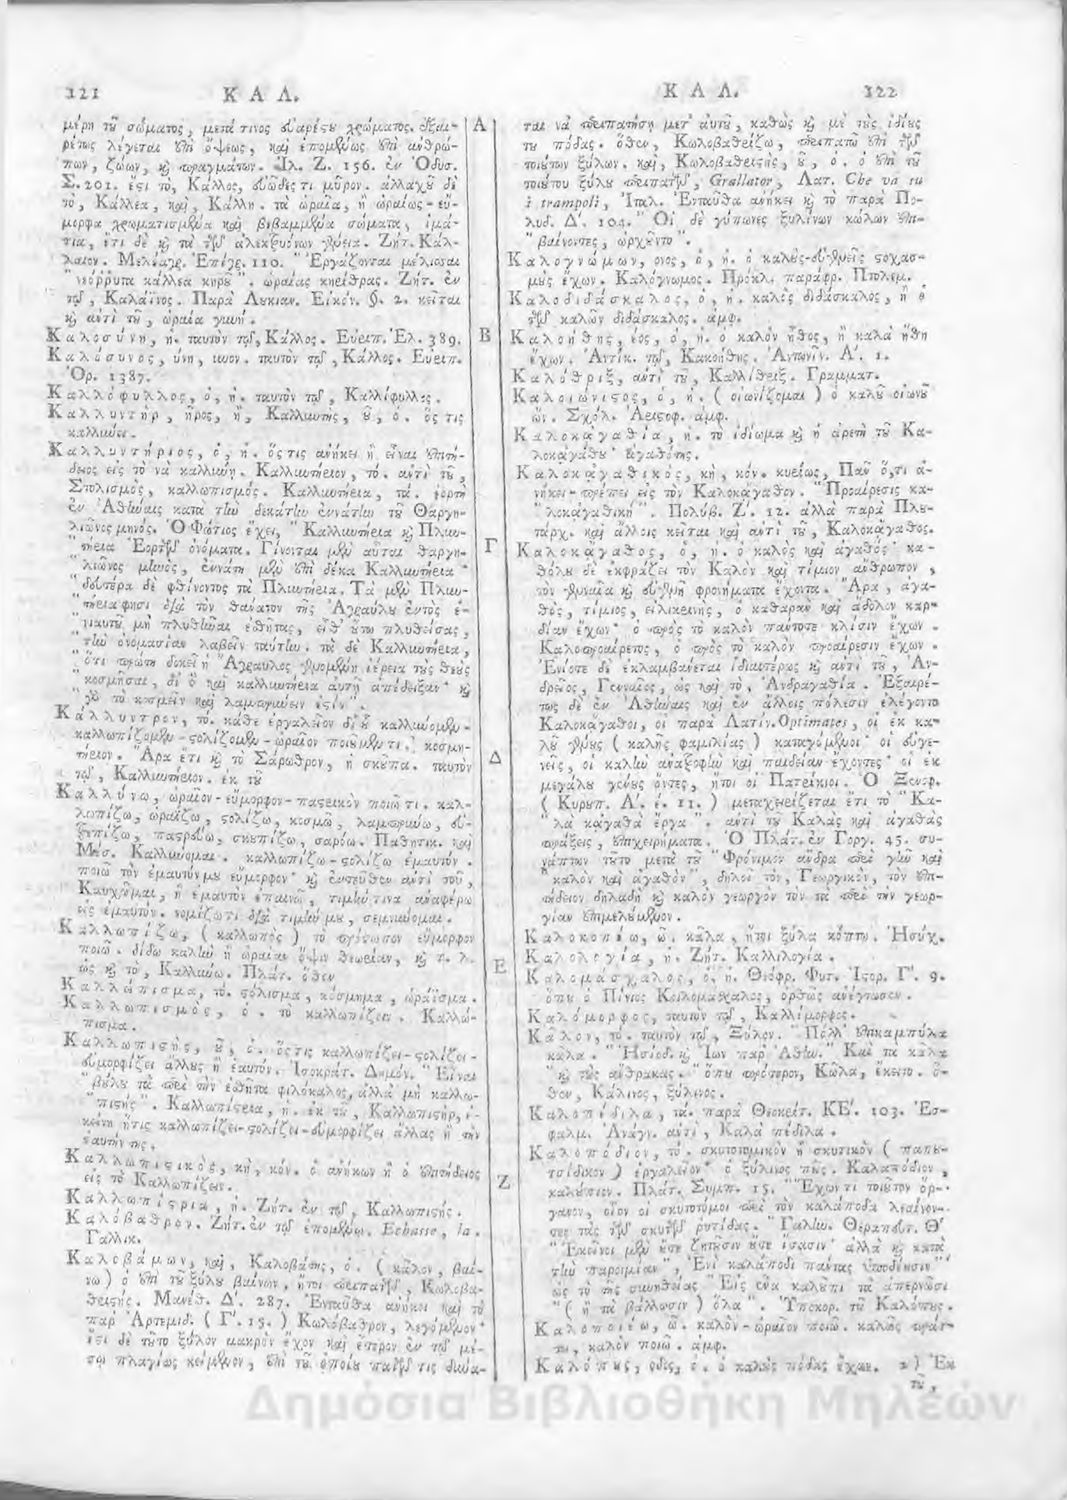 121 ΚΑΛ.
μέρη τοῦ σώματος, μετά τινος εὐαρέστου χρώματος. ἐξαι-
ρέτως λέγεται ἐπὶ ὄψεως, καὶ ἑπομένως ἐπὶ ἀνθρώ-
πων, ζώων, καὶ πραγμάτων. Ἰλ. Ζ. 156. ἐν Ὀδυσ.
Σ. 201. ἔστι τὸ, Κάλλος, εὐῶδές τι μῦρον. ἀλλαχοῦ δὲ
τὸ, Κάλλεα, καὶ, Κάλλη. τὰ ὡραῖα, ἢ ὡραίως-εὔ-
μορφα χρωματισμένα καὶ βεβαμμένα σώματα, ἱμά-
τια, ἔτι δὲ καὶ τὰ τῶν ἀλεκτρυόνων γένεια. Ζήτ. Κάλ-
λαιον. Μελέαγρ. Ἐπίγρ. 110. "Ἐργάζονται μέλισσαι
"νεόῤῥυτα κάλλεα κηροῦ". ὡραίας κηρήθρας. Ζήτ. ἐν
τῷ, Καλάϊνος. Παρὰ Λουκιαν. Εἰκόν. §. 2. κεῖται
καὶ ἀντὶ τοῦ, ὡραία γυνή.
Καλοσύνη, η. ταυτὸν τῷ, Κάλλος. Εὐριπ. Ἑλ. 389.
Καλόσυνος, ύνη, υνον. ταυτὸν τῷ, Κάλλος. Εὐριπ.
Ὀρ. 1387.
Καλλόφυλλος, ὁ, ἡ. ταυτὸν τῷ, Καλλίφυλλος.
Καλλυντὴρ, ῆρος, ἢ, Καλλυντὴς, οῦ, ὁ. ὅς τις
καλλύνει.
Καλλυντήριος, ὁ, ἡ. ὅς τις ἀνήκει ἢ εἶναι ἐπιτή-
δειος εἰς τὸ νὰ καλλύνῃ. Καλλυντήριον, τό. ἀντὶ τοῦ,
Στολισμὸς, καλλωπισμός. Καλλυντήρια, τά. ἑορτὴ
ἐν Ἀθήναις κατὰ τὴν δεκάτην ἐννάτην τοῦ Θαργη-
λιῶνος μηνός. Ὁ Φώτιος ἔχει, "Καλλυντήρια καὶ Πλυν-
"τήρια Ἑορτῶν ὀνόματα. Γίνονται μὲν αὗται Θαργη-
"λιῶνος μηνὸς, ἐννάτῃ μὲν ἐπὶ δέκα Καλλυντήρια·
"δευτέρᾳ δὲ φθίνοντος τὰ Πλυντήρια. Τὰ μὲν Πλυν-
"τήρια φησι διὰ τὸν θάνατον τῆς Ἀγραύλου ἐντὸς ἐ-
"νιαυτοῦ μὴ πλυθῆναι ἐσθῆτας, εἶθ' οὕτω πλυθείσας,
"τὴν ὀνομασίαν λαβεῖν ταύτην. τὰ δὲ Καλλυντήρια,
"ὅτι πρώτη δοκεῖ ἡ Ἄγραυλος γενομένη ἱέρεια τοὺς θεοὺς
"κοσμῆσαι, δι' ὃ καὶ καλλυντήρια αὐτῇ ἀπέδειξαν· καὶ
"γὰρ τὸ κοσμεῖν καὶ λαμπρύνειν ἐστίν".
Κάλλυντρον, τό. κάθε ἐργαλεῖον δι' οὗ καλλύνομεν-
καλλωπίζομεν-στολίζομεν-ὡραῖον ποιοῦμέν τι. κοσμη-
τήριον. Ἆρα ἔτι καὶ τὸ Σάρωθρον, ἡ σκούπα. ταυτὸν
τῷ, Καλλυντήριον. ἐκ τοῦ
Καλλύνω, ὡραῖον-εὔμορφον-παστρικὸν ποιῶ τι. καλ-
λωπίζω, ὡραΐζω, στολίζω, κοσμῶ, λαμπρύνω, εὐ-
τρεπίζω, παστρεύω, σκουπίζω, σαρόω. Παθητικ. καὶ
Μέσ. Καλλύνομαι. καλλωπίζω-στολίζω ἐμαυτόν.
ποιῶ τὸν ἐμαυτόν μου εὔμορφον· καὶ ἐντεῦθεν ἀντὶ τοῦ,
Καυχῶμαι, ἢ ἐμαυτὸν ἐπαινῶ, τιμήν τινα ἀναφέρω
εἰς ἐμαυτὸν. νομίζω τι διὰ τιμήν μου, σεμνύνομαι.
Καλλωπίζω, (καλλωπὸς) τὸ πρόσωπον εὔμορφον
ποιῶ. δίδω καλὴν ἢ ὡραίαν ὄψιν θεωρίαν, καὶ τ. λ.
ὡς καὶ τὸ, Καλλύνω. Πλάτ. ὅθεν
Καλλώπισμα, τό. στόλισμα, κόσμημα, ὡράϊσμα.
Καλλωπισμὸς, ὁ. τὸ καλλωπίζειν. Καλλώ-
πισμα.
Καλλωπιστὴς, οῦ, ὁ. ὅς τις καλλωπίζει-στολίζει-
εὐμορφίζει ἄλλους ἢ ἑαυτόν. Ἰσοκράτ. Δημόν. "Εἶναι
"βούλου τὰ περὶ τὴν ἐσθῆτα φιλόκαλος, ἀλλὰ μὴ καλλω-
"πιστής". Καλλωπίστρια, ἡ. ἐκ τοῦ, Καλλωπιστὴρ, ἐ-
κείνη ἥτις καλλωπίζει-στολίζει-εὐμορφίζει ἄλλας ἢ τὴν
ἑαυτήν της.
Καλλωπιστικὸς, κὴ, κόν. ὁ ἀνήκων ἢ ὁ ἐπιτήδειος
εἰς τὸ Καλλωπίζειν.
Καλλωπίστρια, ἡ. Ζήτ. ἐν τῷ, Καλλωπιστής.
Καλόβαθρον. Ζήτ. ἐν τῷ ἑπομένῳ. Echasse, la.
Γαλλικ.
Καλοβάμων, καὶ, Καλοβάτης, ὁ. (κάλον, βαί-
νω) ὁ ἐπὶ τοῦ ξύλου βαίνων. ἤτοι περιπατῶν, Κωλοβα-
θριστής. Μανέθ. Δ΄. 287. Ἐνταῦθα ἀνήκει καὶ τὸ
παρ' Ἀρτεμιδ. (Γ΄. 15.) Κωλόβαθρον, λεγόμενον·
ἔστι δὲ τοῦτο ξύλον μακρὸν ἔχον καὶ ἕτερον ἐν τῷ μέ-
σῳ πλαγίως κείμενον, ἐπὶ τοῦ ὁποίου πατῶν τις δύνα-
Α
Β
Γ
Δ
Ε
Ζ
ΚΑΛ. 122
ται νὰ περιπατήσῃ μετ' αὐτοῦ, καθὼς καὶ μὲ τοὺς ἰδίους
του πόδας. ὅθεν, Κωλοβαθρίζω, περιπατῶ ἐπὶ τῶν
τοιούτων ξύλων. καὶ, Κωλοβαθριστής, οῦ, ὁ. ὁ ἐπὶ τοῦ
τοιούτου ξύλου περιπατῶν, Grallator, Λατ. Che va su
i trampoli, Ἰταλ. Ἐνταῦθα ἀνήκει καὶ τὸ παρὰ Πο-
λυδ. Δ΄. 104. "Οἱ δὲ γύπωνες ξυλίνων κώλων ἐπι-
"βαίνοντες, ὠρχοῦντο".
Καλογνώμων, ονος, ὁ, ἡ. ὁ καλοὺς-εὐγενεῖς στοχασ-
μοὺς ἔχων. Καλόγνωμος. Πρόκλ. παράφρ. Πτολεμ.
Καλοδιδάσκαλος, ὁ, ἡ. καλὸς διδάσκαλος, ἢ ὁ
τῶν καλῶν διδάσκαλος. ἀμφ.
Καλοήθης, εος, ὁ, ἡ. ὁ καλὸν ἦθος, ἢ καλὰ ἤθη
ἔχων. Ἀντίκ. τῷ, Κακοήθης. Ἀντωνῖν. Α΄. 1.
Καλόθριξ, ἀντὶ τοῦ, Καλλίθριξ. Γραμματ.
Καλοιώνιστος, ὁ, ἡ. (οἰωνίζομαι) ὁ καλοῦ οἰωνοῦ
ὤν. Σχόλ. Ἀριστοφ. ἀμφ.
Καλοκἀγαθία, ἡ. τὸ ἰδίωμα καὶ ἡ ἀρετὴ τοῦ Κα-
λοκἀγάθου· ἀγαθότης.
Καλοκἀγαθικὸς, κὴ, κόν. κυρίως, Πᾶν ὅ,τι ἀ-
νήκει-πρέπει εἰς τὸν Καλοκἄγαθον. "Προαίρεσις κα-
"λοκἀγαθική". Πολύβ. Ζ΄. 12. ἀλλὰ παρὰ Πλου-
τάρχ. καὶ ἄλλοις κεῖται καὶ ἀντὶ τοῦ, Καλοκἄγαθος.
Καλοκἄγαθος, ὁ, ἡ. ὁ καλὸς καὶ ἀγαθός· κα-
θόλου δὲ ἐκφράζει τὸν Καλὸν καὶ τίμιον ἄνθρωπον,
τὸν γενναῖα καὶ εὐγενῆ φρονήματα ἔχοντα. Ἆρα, ἀγα-
θὸς, τίμιος, εἰλικρινὴς, ὁ καθαρὰν καὶ ἄδολον καρ-
δίαν ἔχων· ὁ πρὸς τὸ καλὸν πάντοτε κλίσιν ἔχων.
Καλοπροαίρετος, ὁ πρὸς τὸ καλὸν προαίρεσιν ἔχων.
Ἐνίοτε δὲ ἐκλαμβάνεται ἰδιαιτέρως καὶ ἀντὶ τοῦ, Ἀν-
δρεῖος, Γενναῖος, ὡς καὶ τὸ, Ἀνδραγαθία. Ἐξαιρέ-
τως δὲ ἐν Ἀθήναις καὶ ἐν ἄλλαις πόλεσιν ἐλέγοντο
Καλοκἄγαθοι, οἱ παρὰ Λατίν. Optimates, οἱ ἐκ κα-
λοῦ γένους (καλῆς φαμιλίας) καταγόμενοι· οἱ εὐγε-
νεῖς, οἱ καλὴν ἀναστροφὴν καὶ παιδείαν ἔχοντες· οἱ ἐκ
μεγάλου γένους ὄντες, ἤτοι οἱ Πατρίκιοι. Ὁ Ξενοφ.
(Κυρουπ. Α΄. έ. 11.) μεταχειρίζεται ἔτι τὸ "Κα-
"λὰ κἀγαθὰ ἔργα". ἀντὶ τοῦ Καλὰς καὶ ἀγαθὰς
πράξεις, ἐπιχειρήματα. Ὁ Πλάτ. ἐν Γοργ. 45. συ-
νάπτων τοῦτο μετὰ τοῦ "Φρόνιμον ἄνδρα περὶ γῆν καὶ
"καλὸν καὶ ἀγαθόν", δηλοῖ τὸν, Γεωργικὸν, τὸν ἐπι-
τήδειον δηλαδὴ καὶ καλὸν γεωργὸν τὸν τὰ περὶ τὴν γεωρ-
γίαν ἐπιμελούμενον.
Καλοκοπέω, ῶ. κᾶλα, ἤτοι ξύλα κόπτω. Ἡσύχ.
Καλολογία, ἡ. Ζήτ. Καλλιλογία.
Καλομάσχαλος, ὁ, ἡ. Θεόφρ. Φυτ. Ἱστορ. Γ΄. 9.
ὅπου ὁ Πλίνιος Κοιλομάσχαλος, ὀρθῶς ἀνέγνωσεν.
Καλόμορφος, ταυτὸν τῷ, Καλλίμορφος.
Κᾶλον, τό. ταυτὸν τῷ, Ξύλον. "Πόλλ' ἐπικαμπύλα
κᾶλα. "Ἡσίοδ. καὶ Ἴων παρ' Ἀθήν. "Καὶ τὰ κᾶλα
"καὶ τοὺς ἄνθρακας. "ὅπου πρότερον, Κῶλα, ἔκειτο. ὅ-
θεν, Κάλινος, ξύλινος.
Καλοπέδιλα, τά. παρὰ Θεοκρίτ. ΚΕ΄. 103. Ἐσ-
φαλμ. Ἀνάγν. ἀντὶ, Καλὰ πέδιλα.
Καλοπόδιον, τό. σκυτοτομικὸν ἢ σκυτικὸν (παπου-
τσίδικον) ἐργαλεῖον· ὁ ξύλινος πούς. Καλαπόδιον,
καλούπιον. Πλάτ. Συμπ. 15. "Ἔχων τι τοιοῦτον ὄρ-
γανον, οἷον οἱ σκυτοτόμοι περὶ τὸν καλάποδα λεαίνον-
τες τὰς τῶν σκυτῶν ῥυτίδας. "Γαλην. Θεραπευτ. Θ΄
"Ἐκεῖνοι μὲν οὔτε ζητοῦσιν οὔτε ἴσασιν· ἀλλὰ καὶ κατὰ
τὴν παροιμίαν", Ἑνὶ καλάποδι πάντας ὑποδέουσιν"
ὡς τὸ τῆς συνηθείας "Εἰς ἕνα καλοῦπι τὰ ἀπερνοῦσι
"(ἢ τὰ βάλλουσιν) ὅλα". Ὑποκορ. τοῦ Καλόπους.
Καλοποιέω, ῶ. καλὸν-ὡραῖον ποιῶ. καλῶς πράτ-
τω, καλὸν ποιῶ. ἀμφ.
Καλόπους, οδος, ὁ. ὁ καλοὺς πόδας ἔχων. 2) Ἐκ
τοῦ,
Δημόσια Βιβλιοθήκη Μηλεών